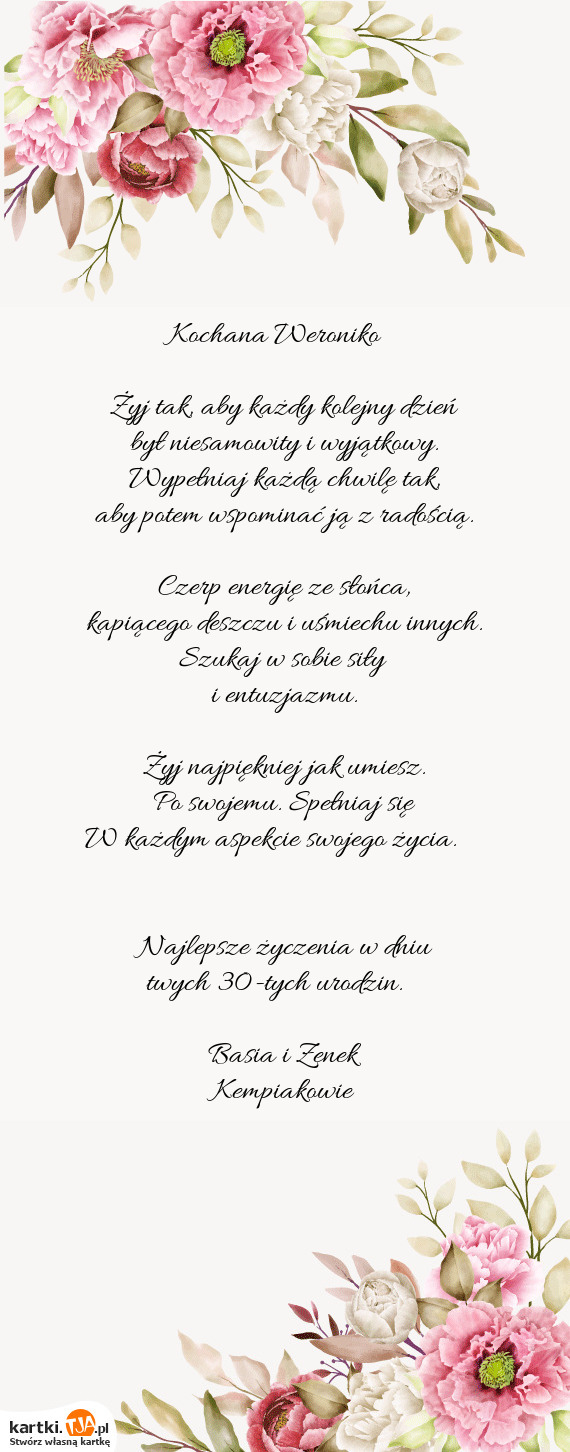 Kochana Weroniko
Żyj tak, aby każdy kolejny dzień
był niesamowity i wyjątkowy.
Wypełniaj każdą chwilę tak,
aby potem wspominać ją z radością.
Czerp energię ze słońca,
kapiącego deszczu i uśmiechu innych.
Szukaj w sobie siły
i entuzjazmu.
Żyj najpiękniej jak umiesz.
Po swojemu. Spełniaj się
W każdym aspekcie swojego życia.
Najlepsze życzenia w dniu
twych 30-tych urodzin.
Basia i Zenek
Kempiakowie
kartki.TJA.pl
Stwórz własną kartkę